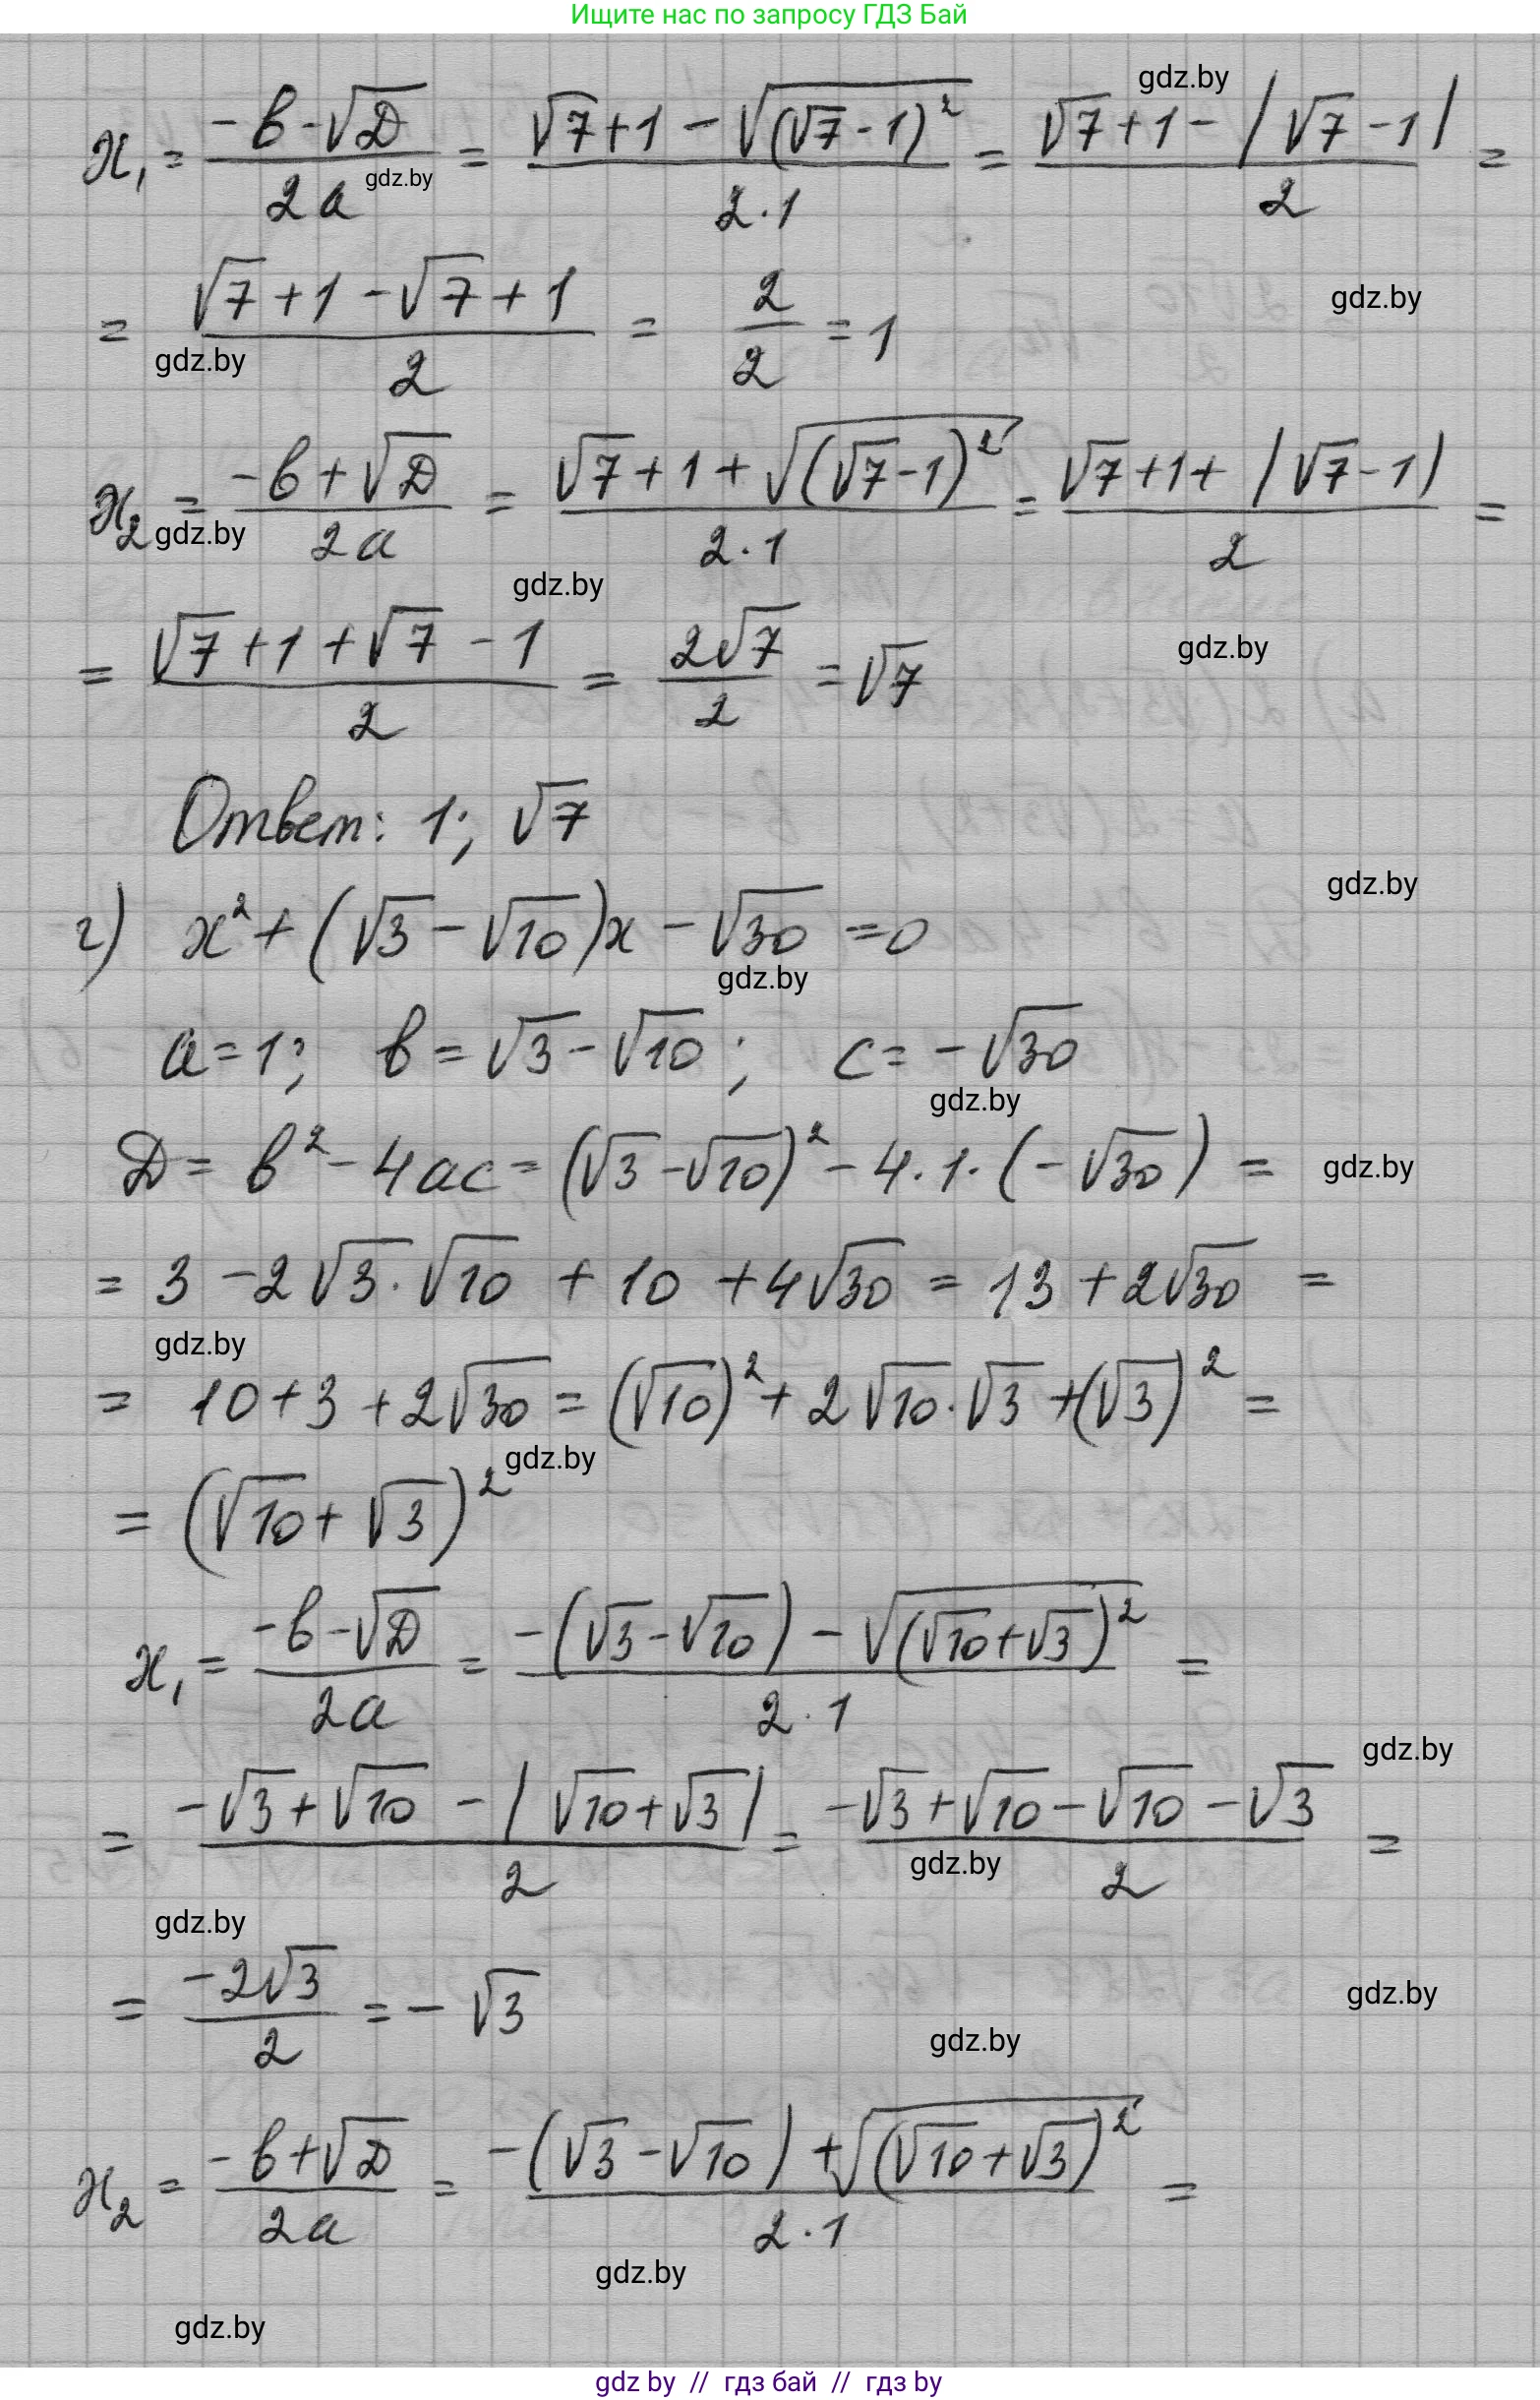 Ищите нас по запросу ГДЗ Бай
gdz.by
x₁ = (-b-√D)/(2a) = (√7+1-√((√7-1)²))/(2·1) = (√7+1-|√7-1|)/2 =
gdz.by
= (√7+1-√7+1)/2 = 2/2 = 1
gdz.by
gdz.by
x₂ = (-b+√D)/(2a) = (√7+1+√((√7-1)²))/(2·1) = (√7+1+|√7-1|)/2 =
gdz.by
gdz.by
= (√7+1+√7-1)/2 = 2√7/2 = √7
gdz.by
Ответ: 1; √7
gdz.by
г) x²+(√3-√10)x-√30=0
gdz.by
a=1; b=√3-√10; c=-√30
gdz.by
D=b²-4ac=(√3-√10)²-4·1·(-√30)=
gdz.by
=3-2√3·√10+10+4√30=13+2√30=
gdz.by
=10+3+2√30=(√10)²+2√10·√3+(√3)²=
gdz.by
=(√10+√3)²
x₁ = (-b-√D)/(2a) = (-(√3-√10)-√((√10+√3)²))/(2·1) =
gdz.by
= (-√3+√10-|√10+√3|)/2 = (-√3+√10-√10-√3)/2 =
gdz.by
gdz.by
= -2√3/2 = -√3
gdz.by
gdz.by
x₂ = (-b+√D)/(2a) = (-(√3-√10)+√((√10+√3)²))/(2·1) =
gdz.by
gdz.by
gdz by // гдз бай // гдз by